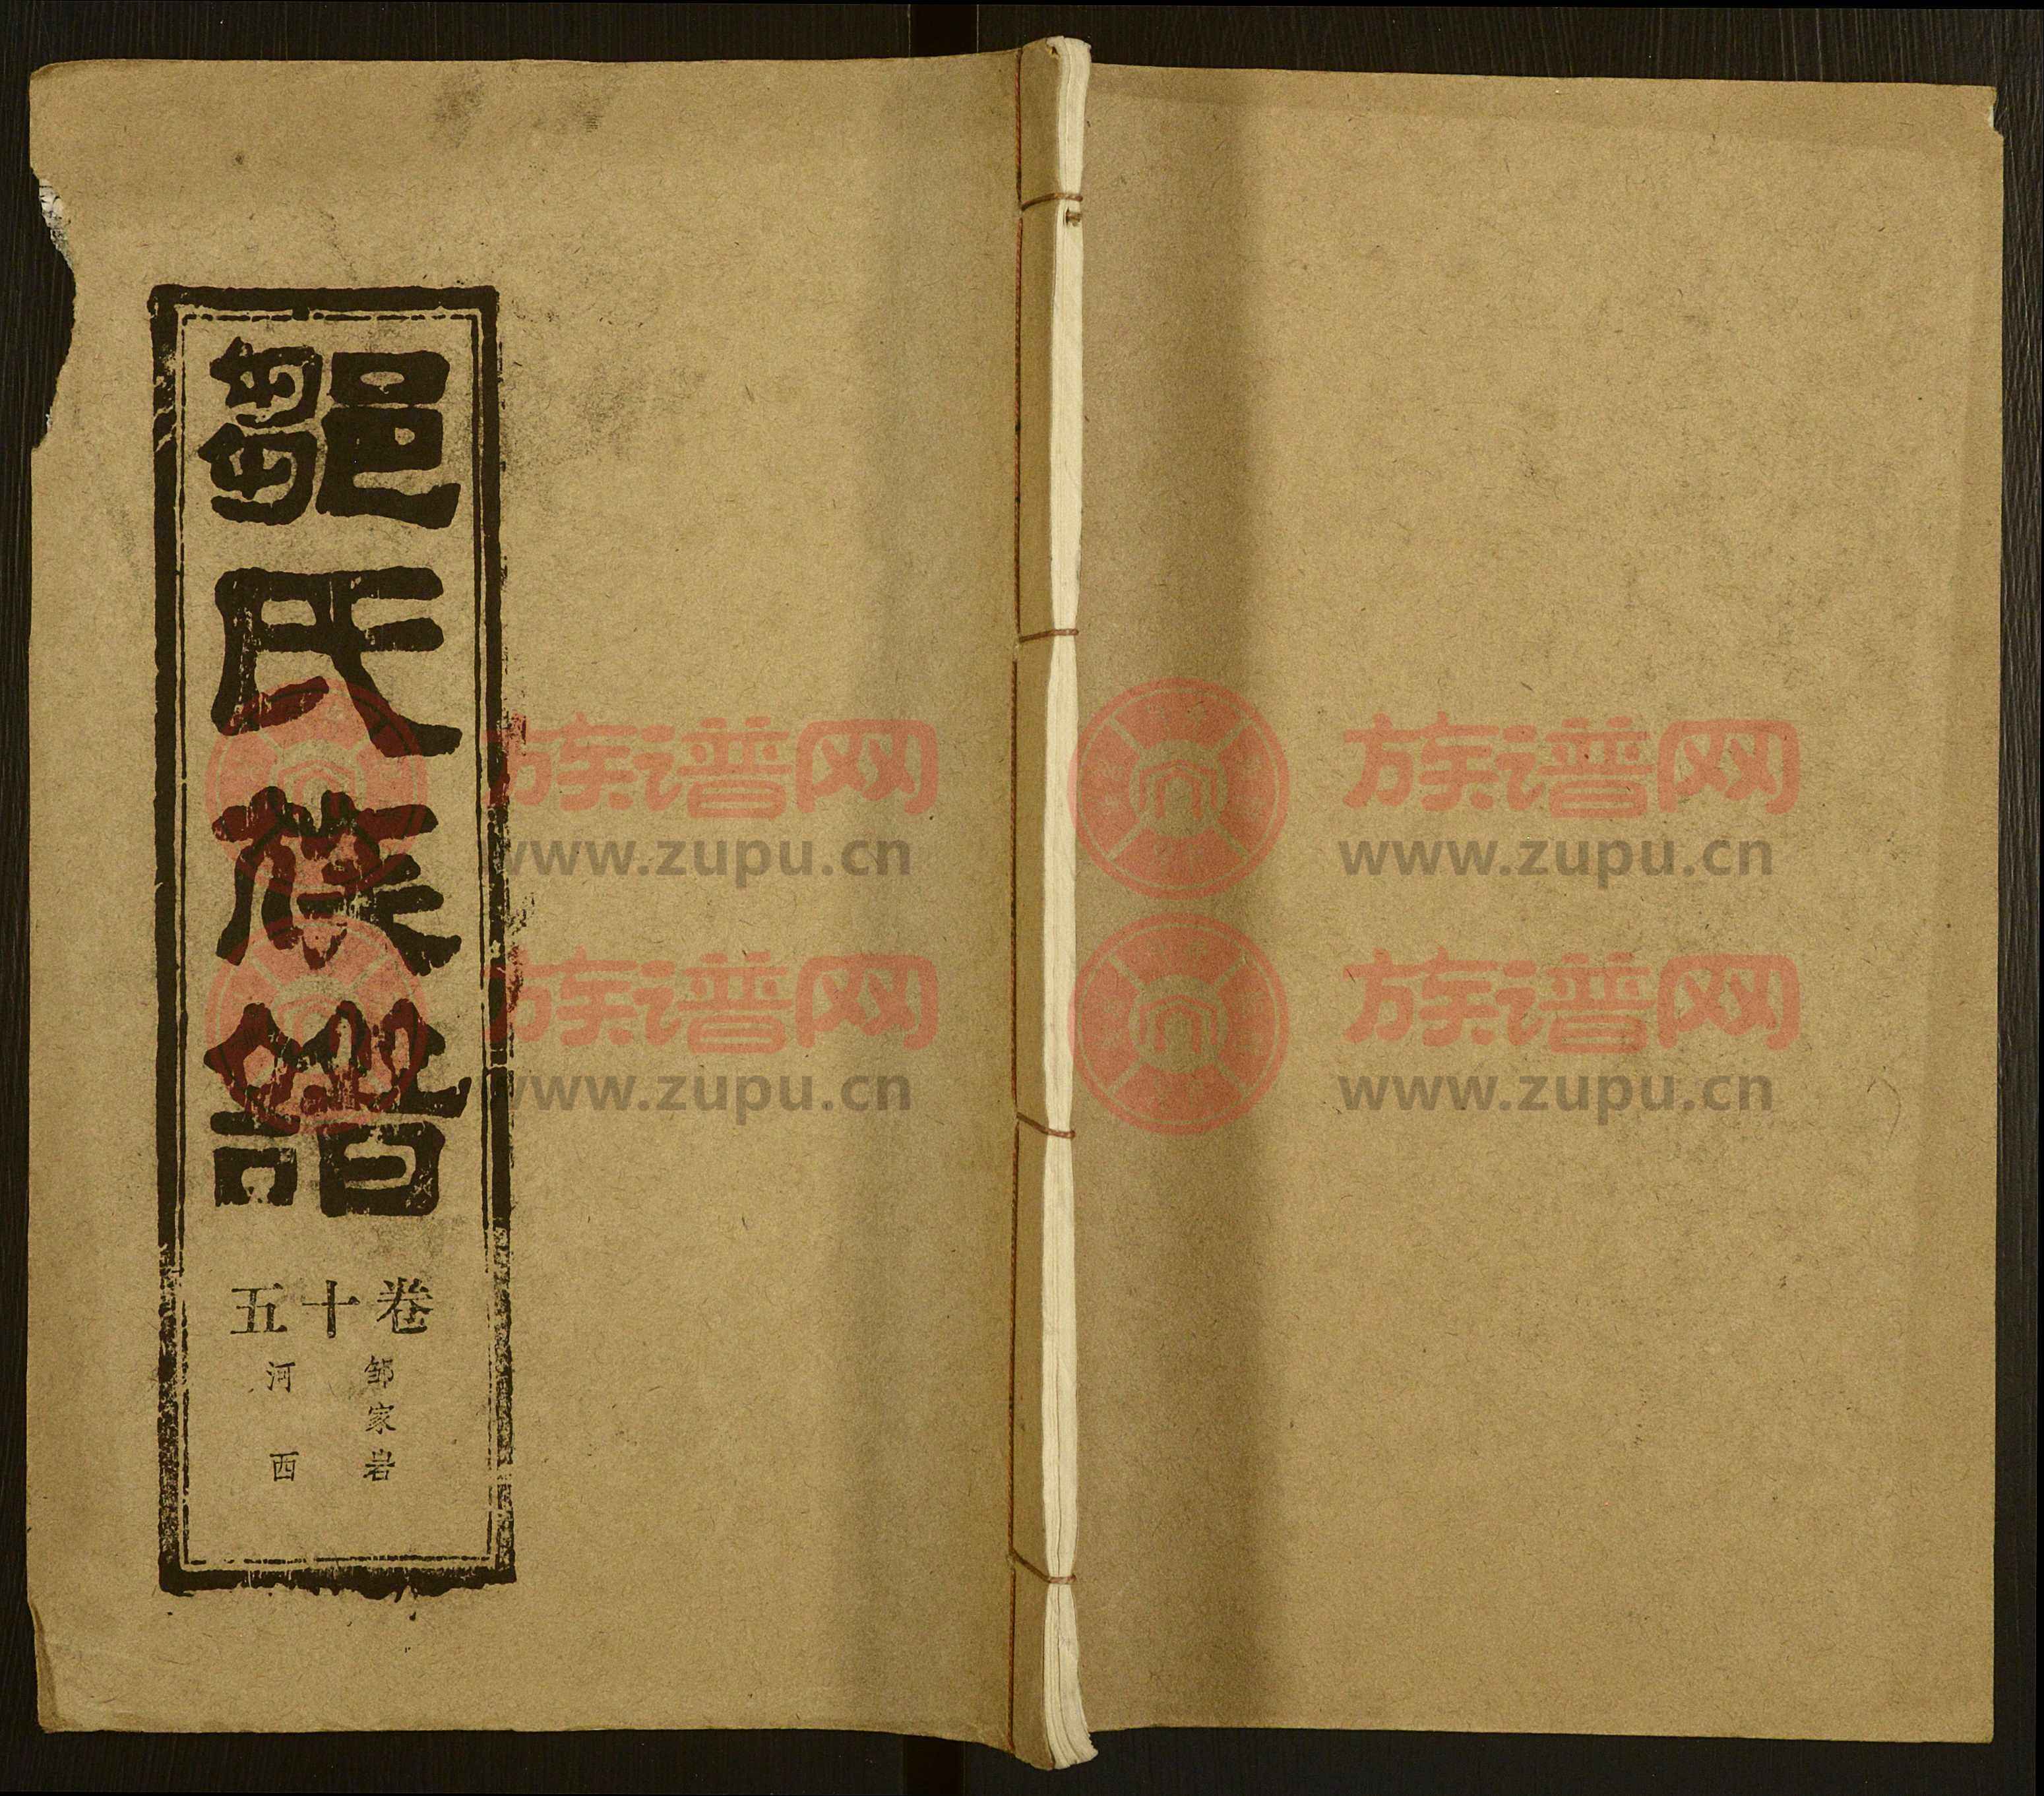 鄒氏族譜
卷十五
邹家岩
河西
族谱网
www.zupu.cn
族谱网
www.zupu.cn
族谱网
www.zupu.cn
族谱网
www.zupu.cn